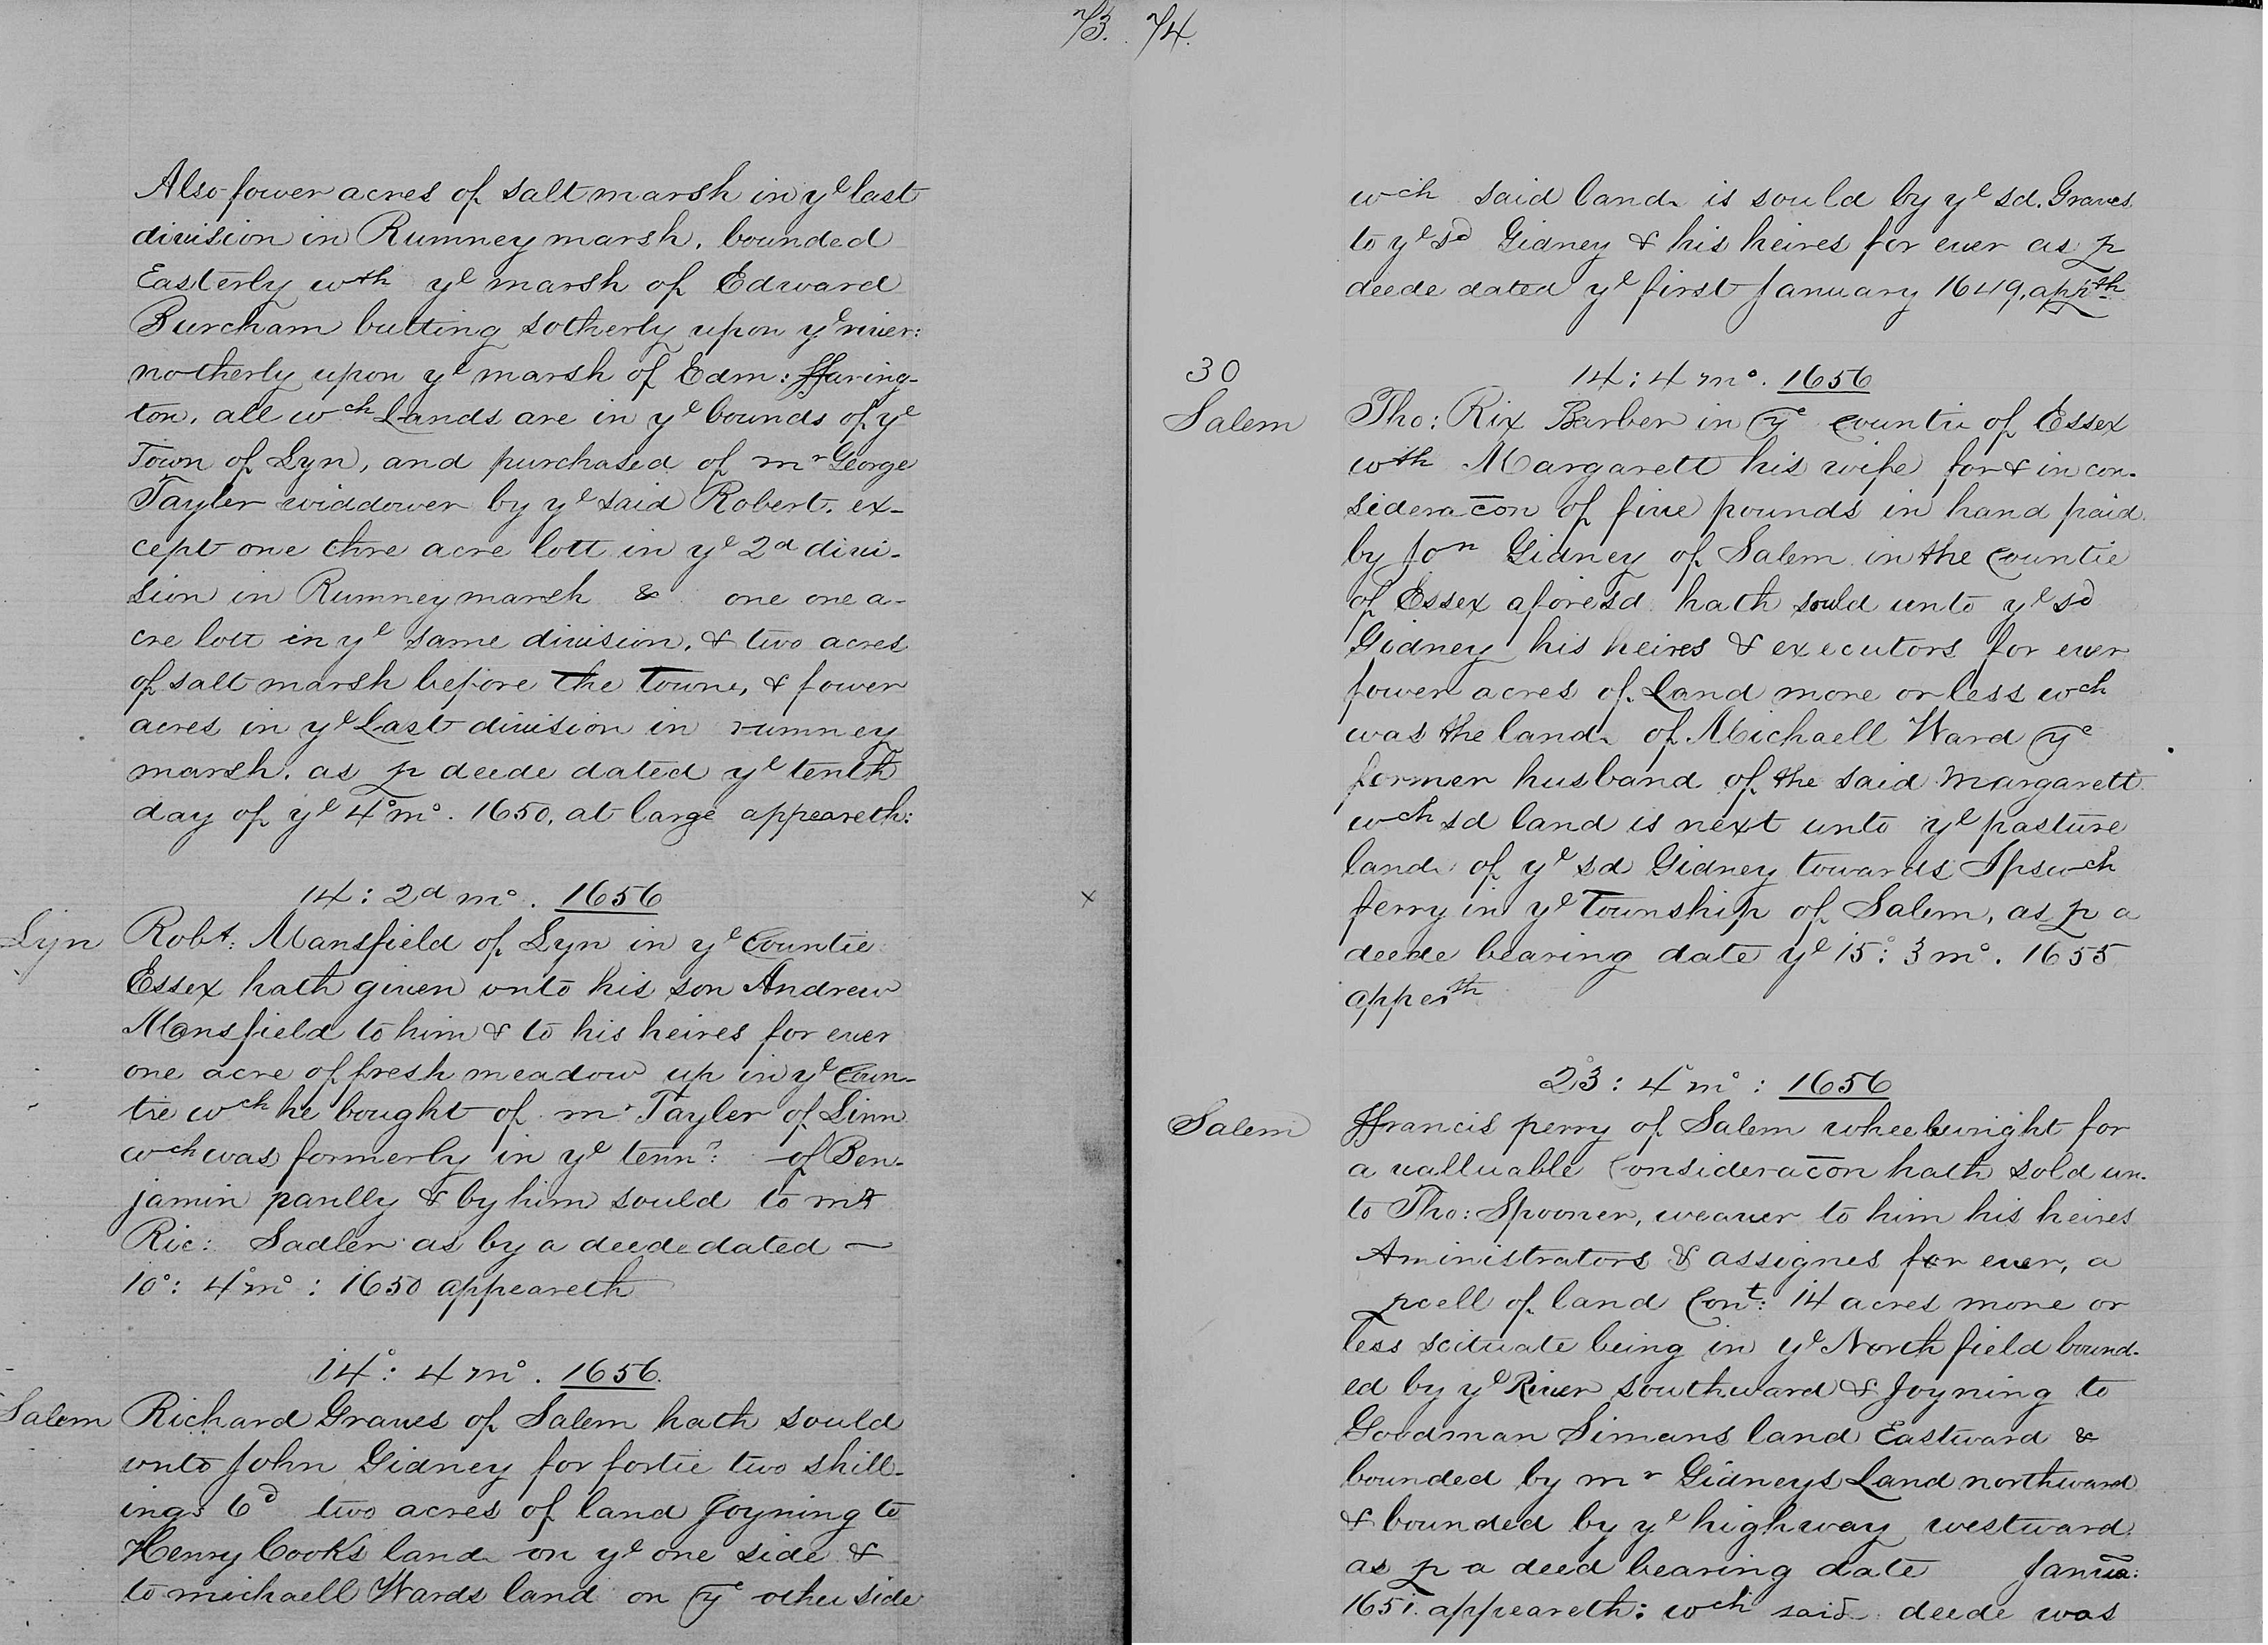 73.
Also fower acres of salt marsh in ye last
diuision in Rumney marsh, bounded
Easterly wth ye marsh of Edward
Burcham butting sotherly upon ye riuer:
notherly upon ye marsh of Edm: ffaring-
ton, all wch Lands are in ye bounds of ye
Town of Lyn, and purchased of mr George
Tayler widdower by ye said Robert. ex-
cept one thre acre lott in ye 2d diui-
sion in Rumney marsh & one one a-
cre lott in ye same diuision, & two acres
of salt marsh before the Towne, & fower
acres in ye Last diuision in rumney
marsh. as p deede dated ye tenth
day of ye 4° m°. 1650, at large appeareth:
14: 2d m°. 1656
Lyn
Robt: Mansfield of Lyn in ye Countie
Essex hath giuen unto his son Andrew
Mansfield to him & to his heires for euer
one acre of fresh meadow up in ye Coun-
trie wch he bought of mr Tayler of Linn
wch was formerly in ye tenn?: of Ben-
jamin parlly & by him sould to mr
Ric: Sadler as by a deede dated —
10°: 4° m°: 1650 appeareth
14°: 4 m°. 1656.
Salem
Richard Graues of Salem hath sould
unto John Gidney for fortie two shill-
ings 6d two acres of land Joyning to
Henry Cooks land on ye one side &
to michaell Wards land on ye other side
74.
wch said land is sould by ye sd. Graues
to ye sd Gidney & his heires for euer as p
deede dated ye first January 1649, appth
30
14: 4 m°. 1656
Salem
Tho: Rix Barber in ye Countie of Essex
wth Margarett his wife for & in con-
sideracon of fiue pounds in hand paid
by Jon Gidney of Salem in the Countie
of Essex aforesd hath sould unto ye sd
Gidney his heires & executors for euer
fower acres of Land more or less wch
was the land of Michaell Ward ye
former husband of the said Margarett
wch sd land is next unto ye pasture
land of ye sd Gidney towards Ipswch
ferry in ye Township of Salem, as p a
deede bearing date ye 15: 3 m°. 1655
apperth
23: 4 m°: 1656
Salem
ffrancis perry of Salem wheelwright for
a ualluable Consideracon hath sold un-
to Tho: Spooner, weauer to him his heires
Aministrators & assignes for euer, a
pcell of land Cont: 14 acres more or
less scituate being in ye North field bound-
ed by ye Riuer southward & Joyning to
Goodman Simans land Eastward &
bounded by mr Gidneys Land northward
& bounded by ye highway westward
as p a deed bearing date Janua:
1651. appeareth: wch said deede was